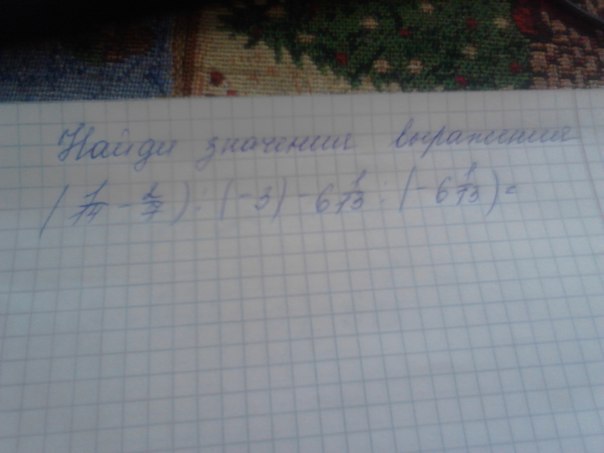 Найди значения выражения
(1/14 - 2/7) : (-3) - 6 1/13 : (-6 1/13) =